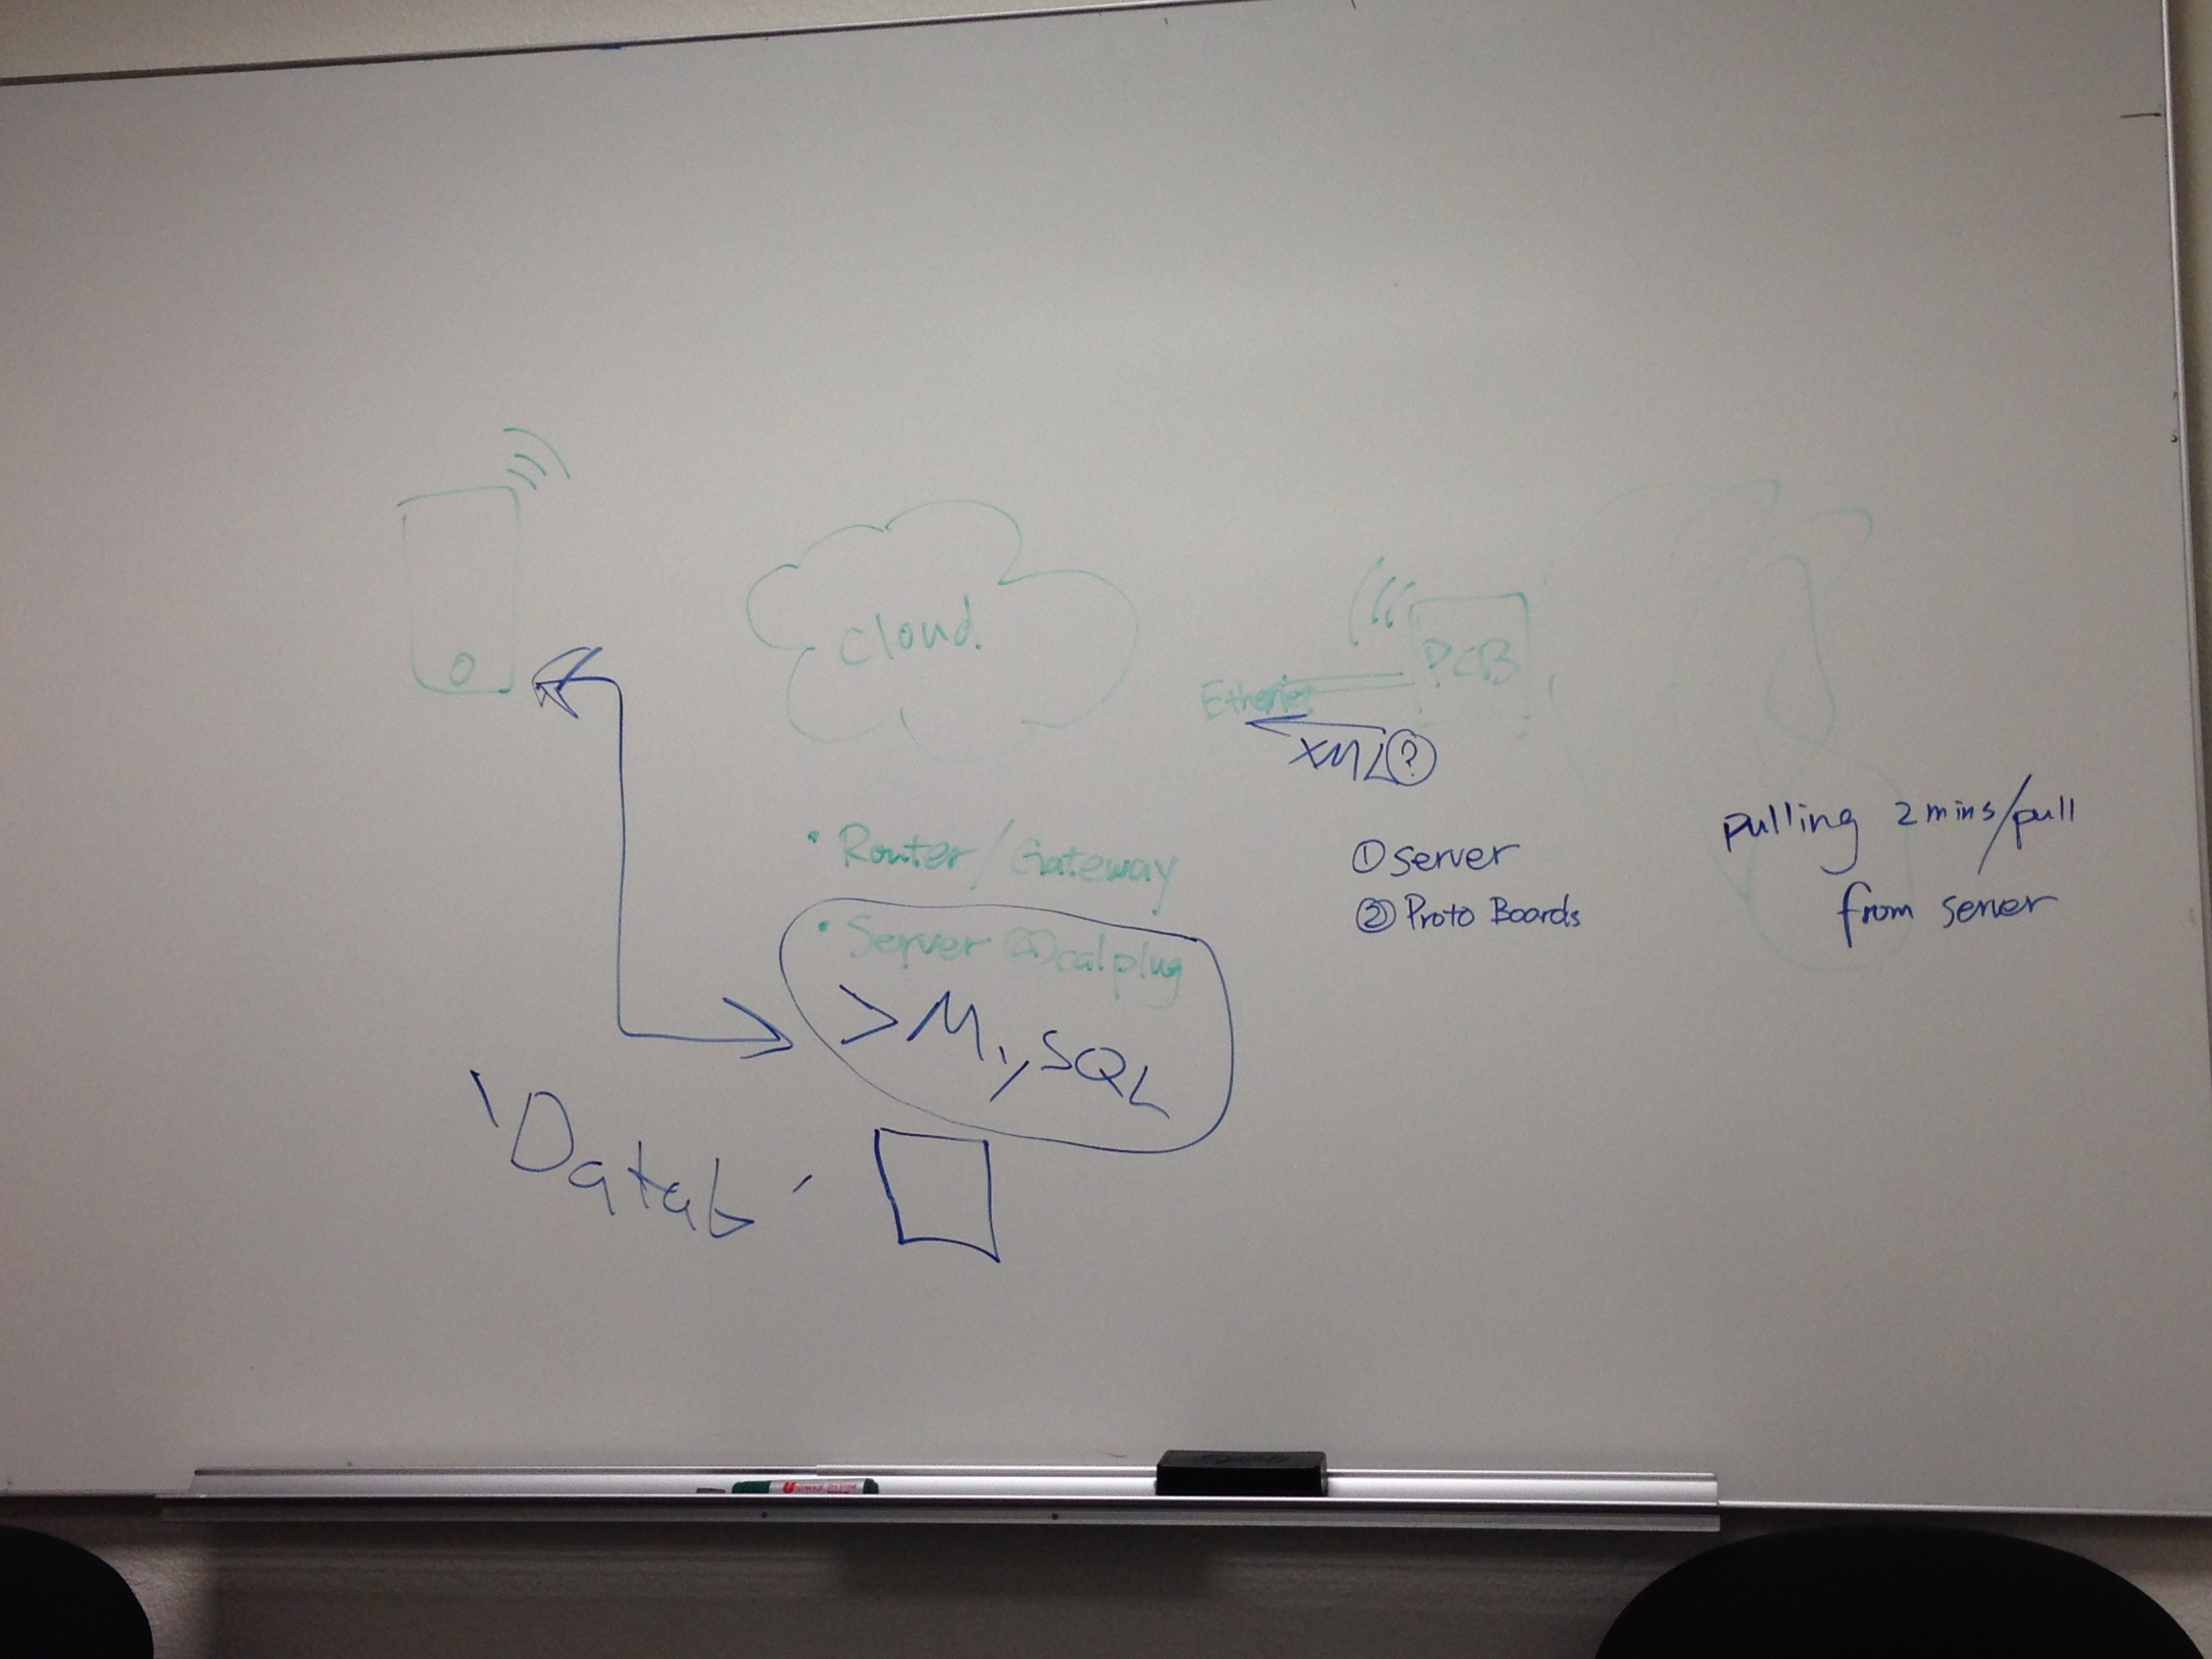 cloud.
PCB
Ethernet
XML?
• Router/Gateway
• Server @calplug
> MySQL
Datab
① server
② Proto Boards
pulling 2 mins/pull
from server